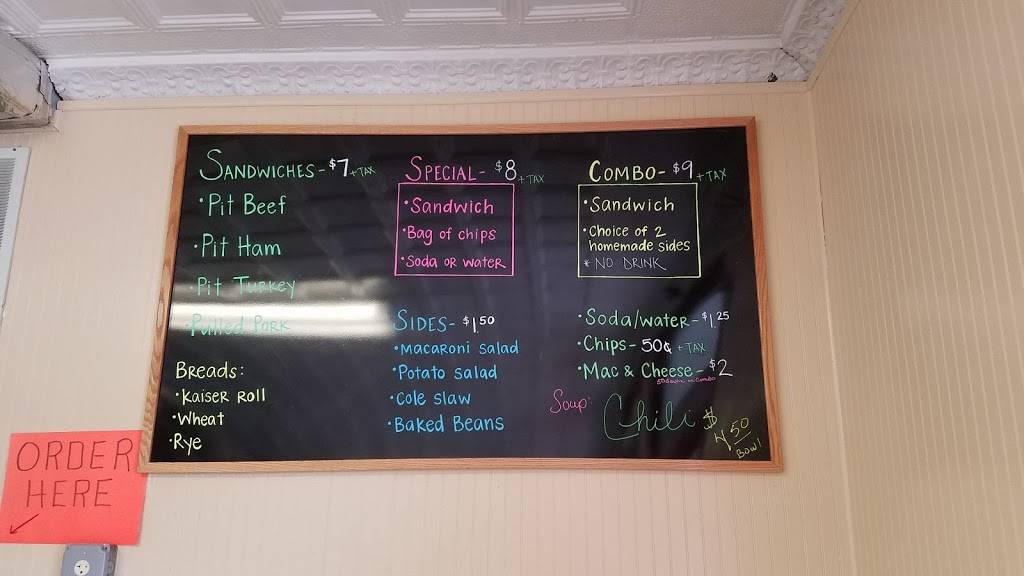 SANDWICHES- $7 + TAX
• Pit Beef
• Pit Ham
• Pit Turkey
• Pulled Pork
Breads:
• Kaiser Roll
• Wheat
• Rye
SPECIAL- $8 + TAX
• Sandwich
• Bag of chips
• Soda or water
SIDES- $1.50
• Macaroni Salad
• Potato salad
• Cole slaw
• Baked Beans
COMBO- $9 + TAX
• Sandwich
• Choice of 2
homemade sides
* NO DRINK
• Soda/water- $1.25
• Chips- 50¢ + TAX
• Mac & Cheese- $2
Soup: Chili $4.50
Bowl
ORDER
HERE